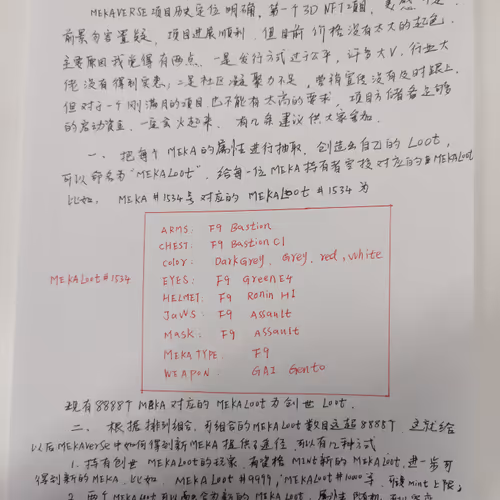 MEKAVERSE 项目历史定位明确，第一个3D NFT项目，
前景勿容置疑，项目进展顺利，但目前价格没有太大的起色，
主要原因我觉得有两点，一是发行方式过于公平，许多大V、行业大
佬没有得到实惠；二是社区凝聚力不足，营销宣传没有及时跟上。
但对于一个刚满月的项目也不能有太高的要求，项目方储备足够
的启动资金，一定会火起来。有几条建议供大家参加。
一、把每个MEKA的属性进行抽取，创造出自己的Loot，
可以命名为“MEKALoot”，给每一位MEKA持有者空投对应的MEKALoot
比如，MEKA #1534号对应的MEKALoot #1534为
MEKALoot#1534
ARMS: F9 Bastion
CHEST: F9 Bastion C1
Color: DarkGrey, Grey, red, White
EYES: F9 Green E4
HELMET: F9 Ronin H1
JAWS: F9 Assault
MASK: F9 Assault
MEKA TYPE: F9
WEAPON: GA2 Gonto
现有8888个MEKA对应的MEKALoot为创世Loot。
二、根据排列组合，可组合的MEKALoot数目远超8888个，这就给
以后MEKAVerse中如何得到新MEKA提供了途径，可以有几种方式
1. 持有创世MEKALoot的玩家，有资格Mint新的MEKALoot，进一步可
得到新的MEKA，比如，MEKALoot #9999，MEKALoot #10000等，可设Mint上限；
2. 两个MEKALoot可以